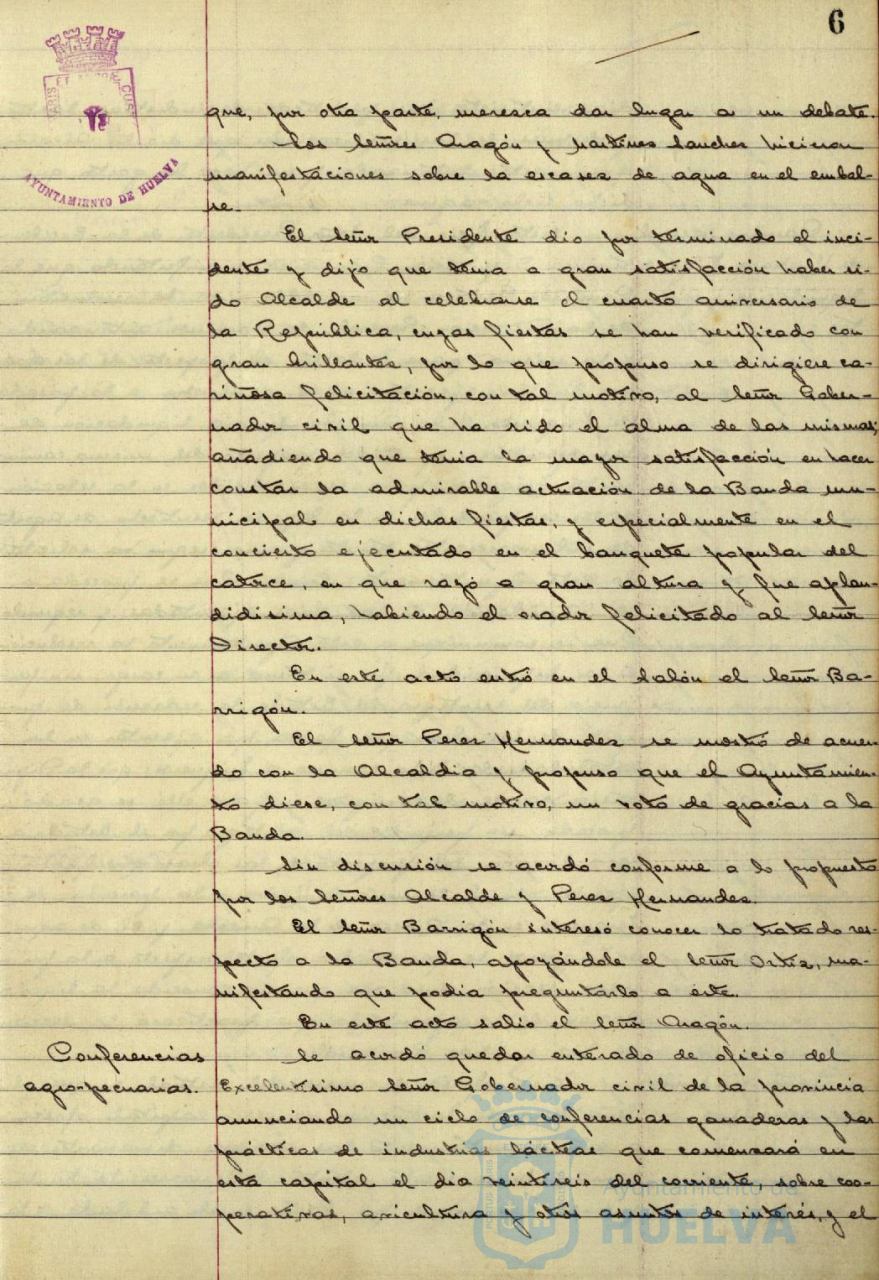 6
AYUNTAMIENTO DE HUELVA
que, por otra parte, merezca dar lugar a un debate.
Los señores Aragón y Martínez Sanchez hicieron
manifestaciones sobre la escasez de agua en el embal-
se.
El señor Presidente dio por terminado el inci-
dente y dijo que tenia a gran satisfacción haber si-
do Alcalde al celebrarse el cuarto aniversario de
la República, cuyas fiestas se han verificado con
gran brillantez, por lo que propuso se dirigiese ca-
riñosa felicitación, con tal motivo, al señor Gober-
nador civil que ha sido el alma de las mismas;
añadiendo que tenia la mayor satisfacción en hacer
constar la admirable actuación de la Banda mu-
nicipal en dichas fiestas, y especialmente en el
concierto ejecutado en el banquete popular del
catorce, en que rayó a gran altura y fue aplau-
didisima, habiendo el orador felicitado al señor
Director.
En este acto entró en el salón el señor Ba-
rrigón.
El señor Perez Hernandez se mostró de acuer-
do con la Alcaldia y propuso que el Ayuntamien-
to diese, con tal motivo, un voto de gracias a la
Banda.
Sin discusión se acordó conforme a lo propuesto
por los señores Alcalde y Perez Hernandez.
El señor Barrigón interesó conocer lo tratado res-
pecto a la Banda, apoyándole el señor Ortiz, ma-
nifestando que podia preguntarlo a éste.
En este acto salio el señor Aragón.
Conferencias
agro-pecuarias.
Se acordó quedar enterado de oficio del
Excelentisimo señor Gobernador civil de la provincia
anunciando un ciclo de conferencias ganaderas y las
prácticas de industrias lácteas que comenzará en
esta capital el dia veintiseis del corriente, sobre coo-
perativas, avicultura y otros asuntos de interés, y el
Ayuntamiento de
HUELVA